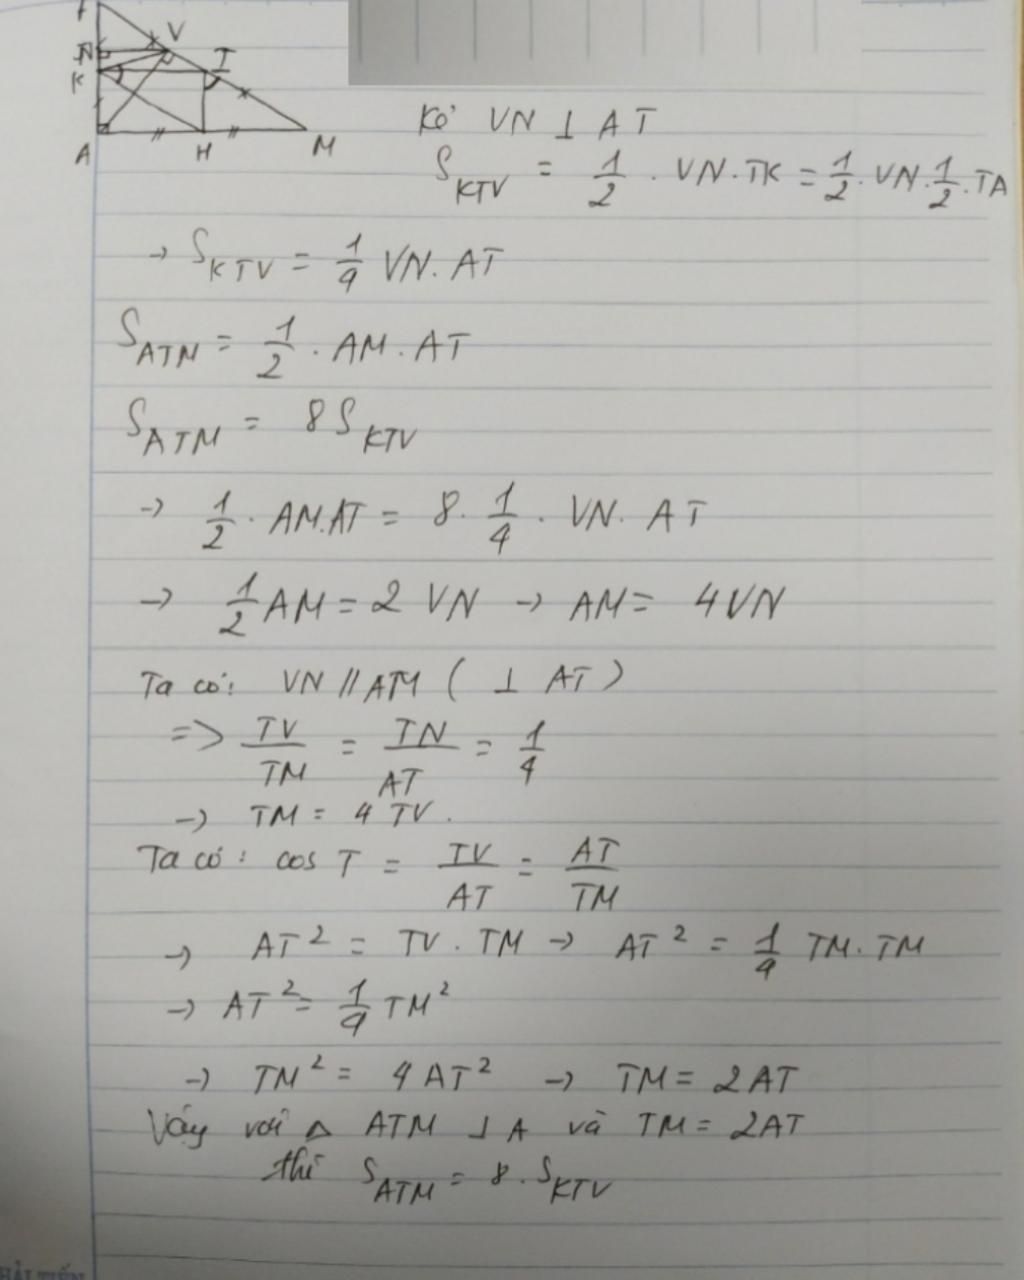 T
V
N
I
K
A H M
Kẻ VN ⊥ AT
S_KTV = 1/2 . VN.TK = 1/2 . VN. 1/2 . TA
→ S_KTV = 1/4 VN. AT
S_ATM = 1/2 . AM . AT
S_ATM = 8 S_KTV
→ 1/2 . AM.AT = 8. 1/4 . VN. AT
→ 1/2 AM = 2 VN → AM = 4VN
Ta có: VN // ATM ( ⊥ AT )
=> TV/TM = TN/AT = 1/4
→ TM = 4 TV.
Ta có: cos T = TV/AT = AT/TM
→ AT² = TV . TM → AT² = 1/4 TM. TM
→ AT² = 1/4 TM²
→ TM² = 4 AT² → TM = 2AT
Vậy với △ ATM ⊥ A và TM = 2AT
thì S_ATM = 8 . S_KTV
HẢI TIẾN